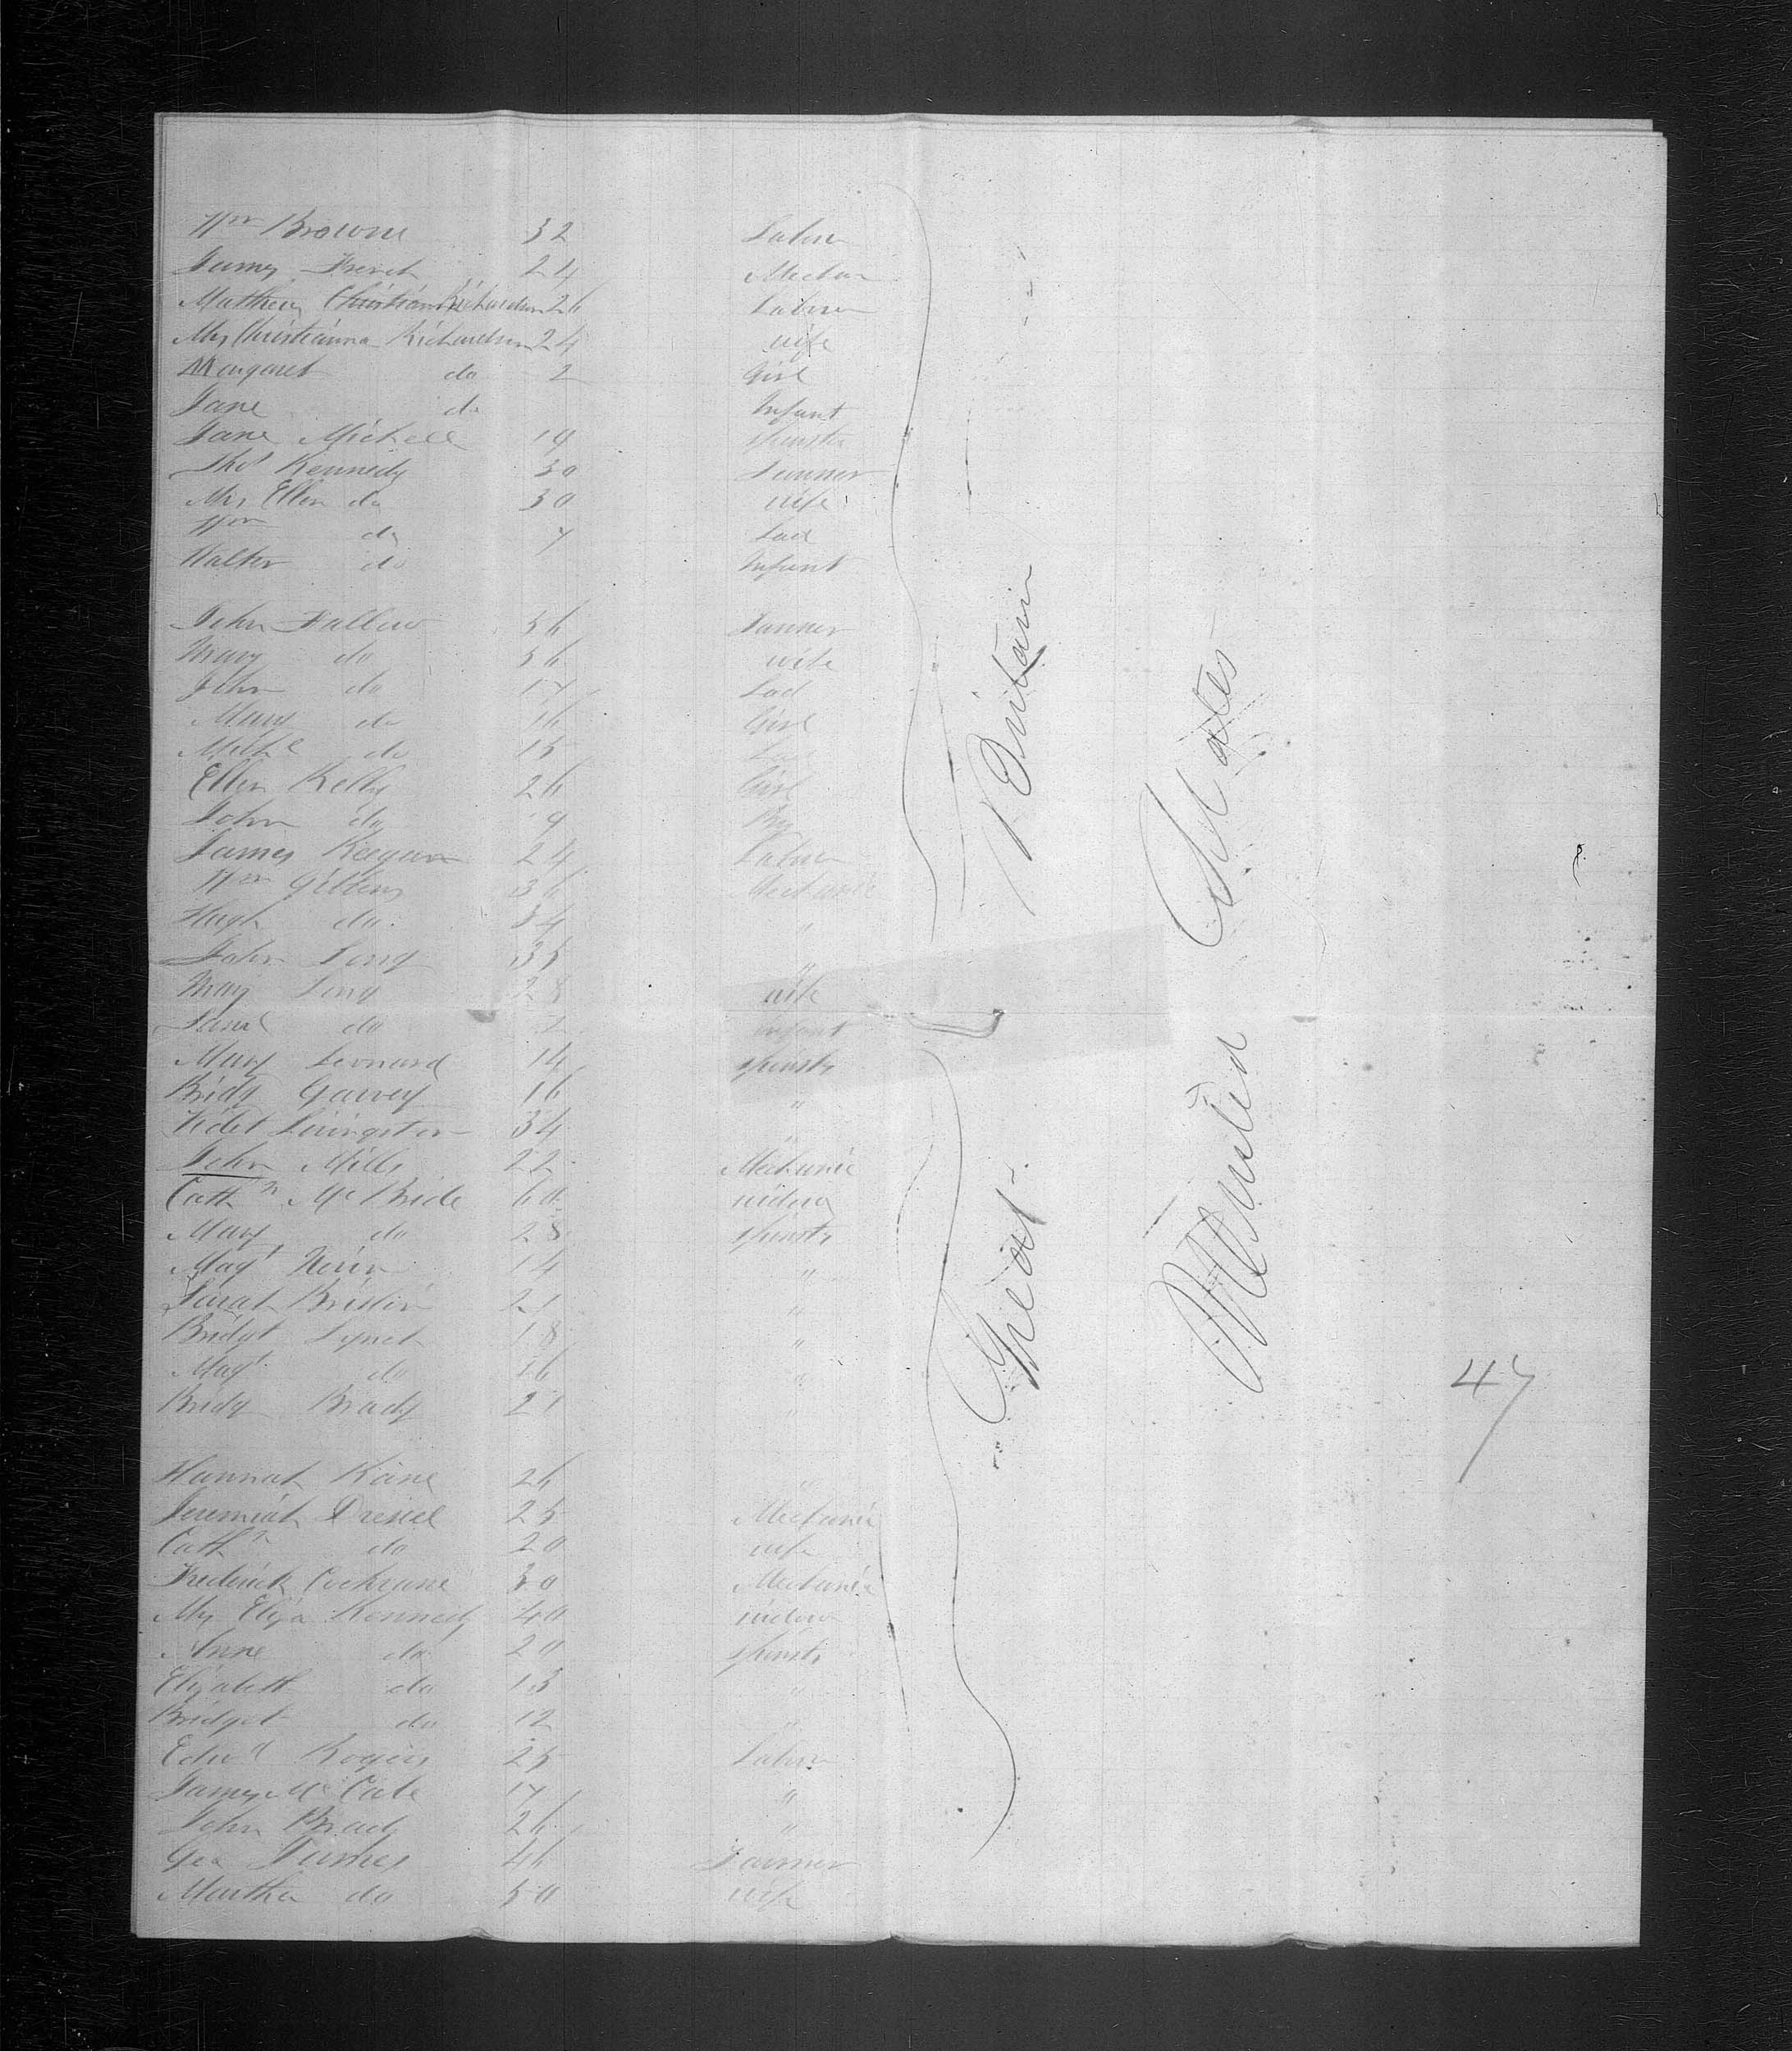 Wm Browne 32 Labrer
James French 24 Mechan
Matthew Christian Richardson 26 Labrer
Mrs Christianna Richardson 24 wife
Margaret do 2 Girl
Jane do Infant
Jane Michell 19 spinster
Thos Kennedy 30 Farmer
Mrs Ellen do 30 wife
Wm do 7 Lad
Walter do Infant
John Fallow 56 Farmer
Mary do 56 wife
John do 17 Lad
Mary do 16 Girl
Michl do 15 Lad
Ellen Kelly 26 Girl
John do 9 Boy
James Keegan 24 Labrer
Wm Gibbens 36 Mechanic
Hugh do 34 "
John Long 35 "
Mary Long 28 wife
do Infant
Mary Leonard 14 spinstr
Bridg Garvey 16 "
Livingston 34
John Mills 22 Mechanic
Cathn McBride 60 widow
Mary do 28 spinstr
Magt 14 "
Sarah 21 "
Bridgt Lynch 18 "
Magt do 16 "
Bridg Brady 21 "
Hannah Kane 26 "
Jeremiah 25 Mechanic
Cathn do 20 wife
Frederick Cochrane 30 Mechanic
Mrs Eliza Kennedy 40 widow
Anne do 20 spinstr
Elizabeth do 13 "
Bridget do 12 "
Edwd Rogers 25 Labrer
James McCabe 17 "
John Brady 26 "
Geo James 46 Farmer
Martha do 50 wife
Great Britain
United States
47